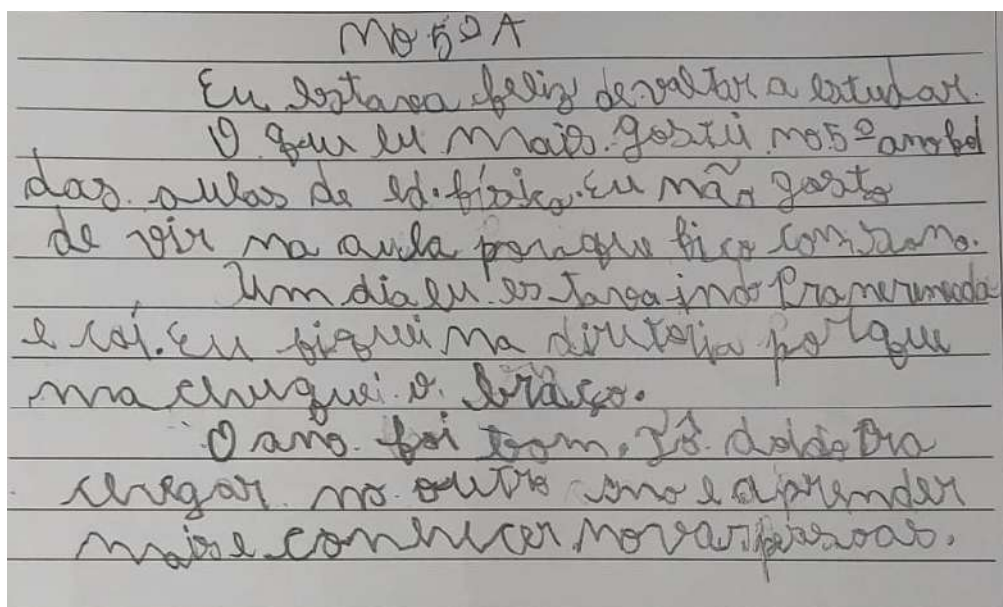 no 5º A
Eu estava feliz de voltar a estudar.
O que eu mais gostei no 5º ano foi
das aulas de ed. física. Eu não gosto
de vir na aula porque fico com sono.
Um dia eu estava indo pra merenda
e caí. Eu fiquei na diretoria porque
machuquei o braço.
O ano foi bom. Tô doido pra
chegar no outro ano e aprender
mais e conhecer novas pessoas.